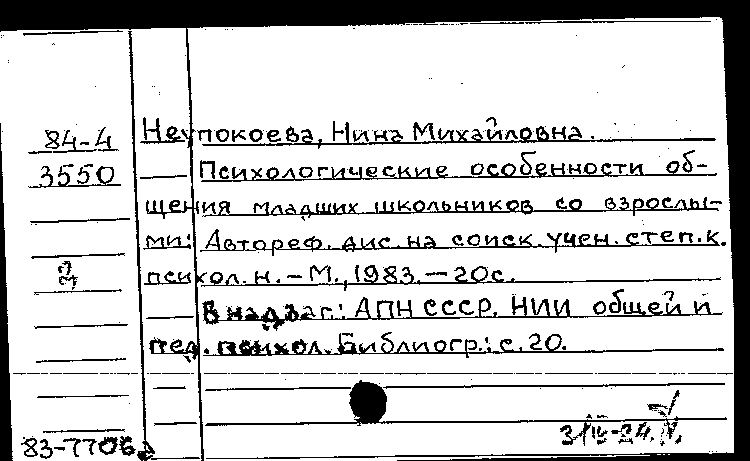 84-4 Неупокоева, Нина Михайловна.
3550 Психологические особенности об-
щения младших школьников со взрослы-
ми: Автореф. дис. на соиск. учен. степ. к.
психол. н. – М., 1983. – 20с.
В надзаг.: АПН СССР. НИИ общей и
пед. психол. Библиогр.: с. 20.
83-7706